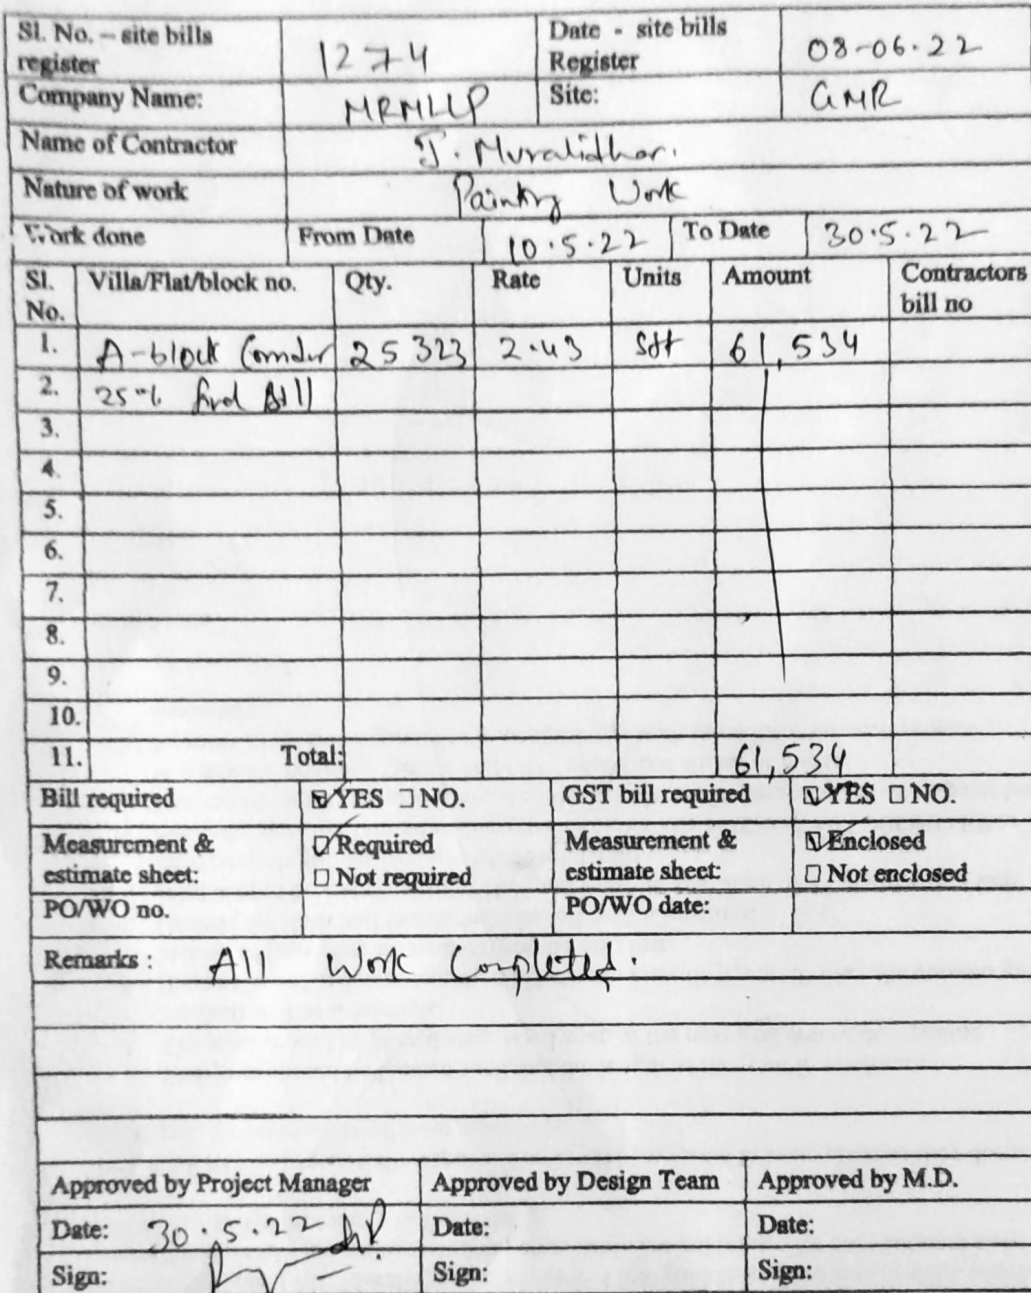 Sl. No. – site bills register 1274 Date - site bills Register 08-06-22
Company Name: MRMLLP Site: GMR
Name of Contractor J. Muralidhar.
Nature of work Painting Work
Work done From Date 10.5.22 To Date 30.5.22
Sl. No. Villa/Flat/block no. Qty. Rate Units Amount Contractors bill no
1. A-block Corridor 25323 2.43 Sft 61,534
2. 25% final Bill
3.
4.
5.
6.
7.
8.
9.
10.
11. Total: 61,534
Bill required ☑YES ☐NO. GST bill required ☑YES ☐NO.
Measurement & estimate sheet: ☑Required Measurement & estimate sheet: ☑Enclosed
☐Not required ☐Not enclosed
PO/WO no. PO/WO date:
Remarks : All Work Completed.
Approved by Project Manager Approved by Design Team Approved by M.D.
Date: 30.5.22 Date: Date:
Sign: Sign: Sign: